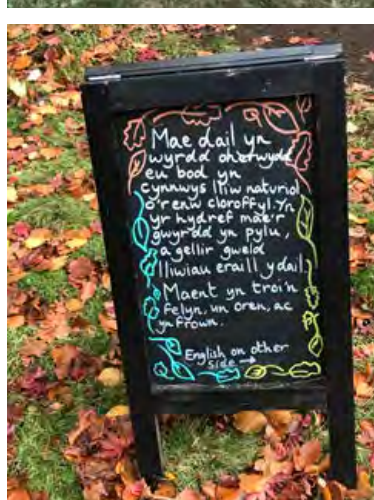 Mae dail yn
wyrdd oherwydd
eu bod yn
cynnwys lliw naturiol
o'r enw cloroffyl. Yn
yr hydref mae'r
gwyrdd yn pylu,
a gellir gweld
lliwiau eraill y dail.
Maent yn troi'n
felyn, yn oren, ac
yn frown.
English on other
side →